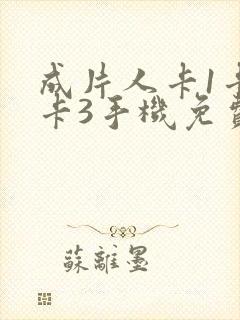 成片人卡1卡
卡3手機免費
蘇離墨